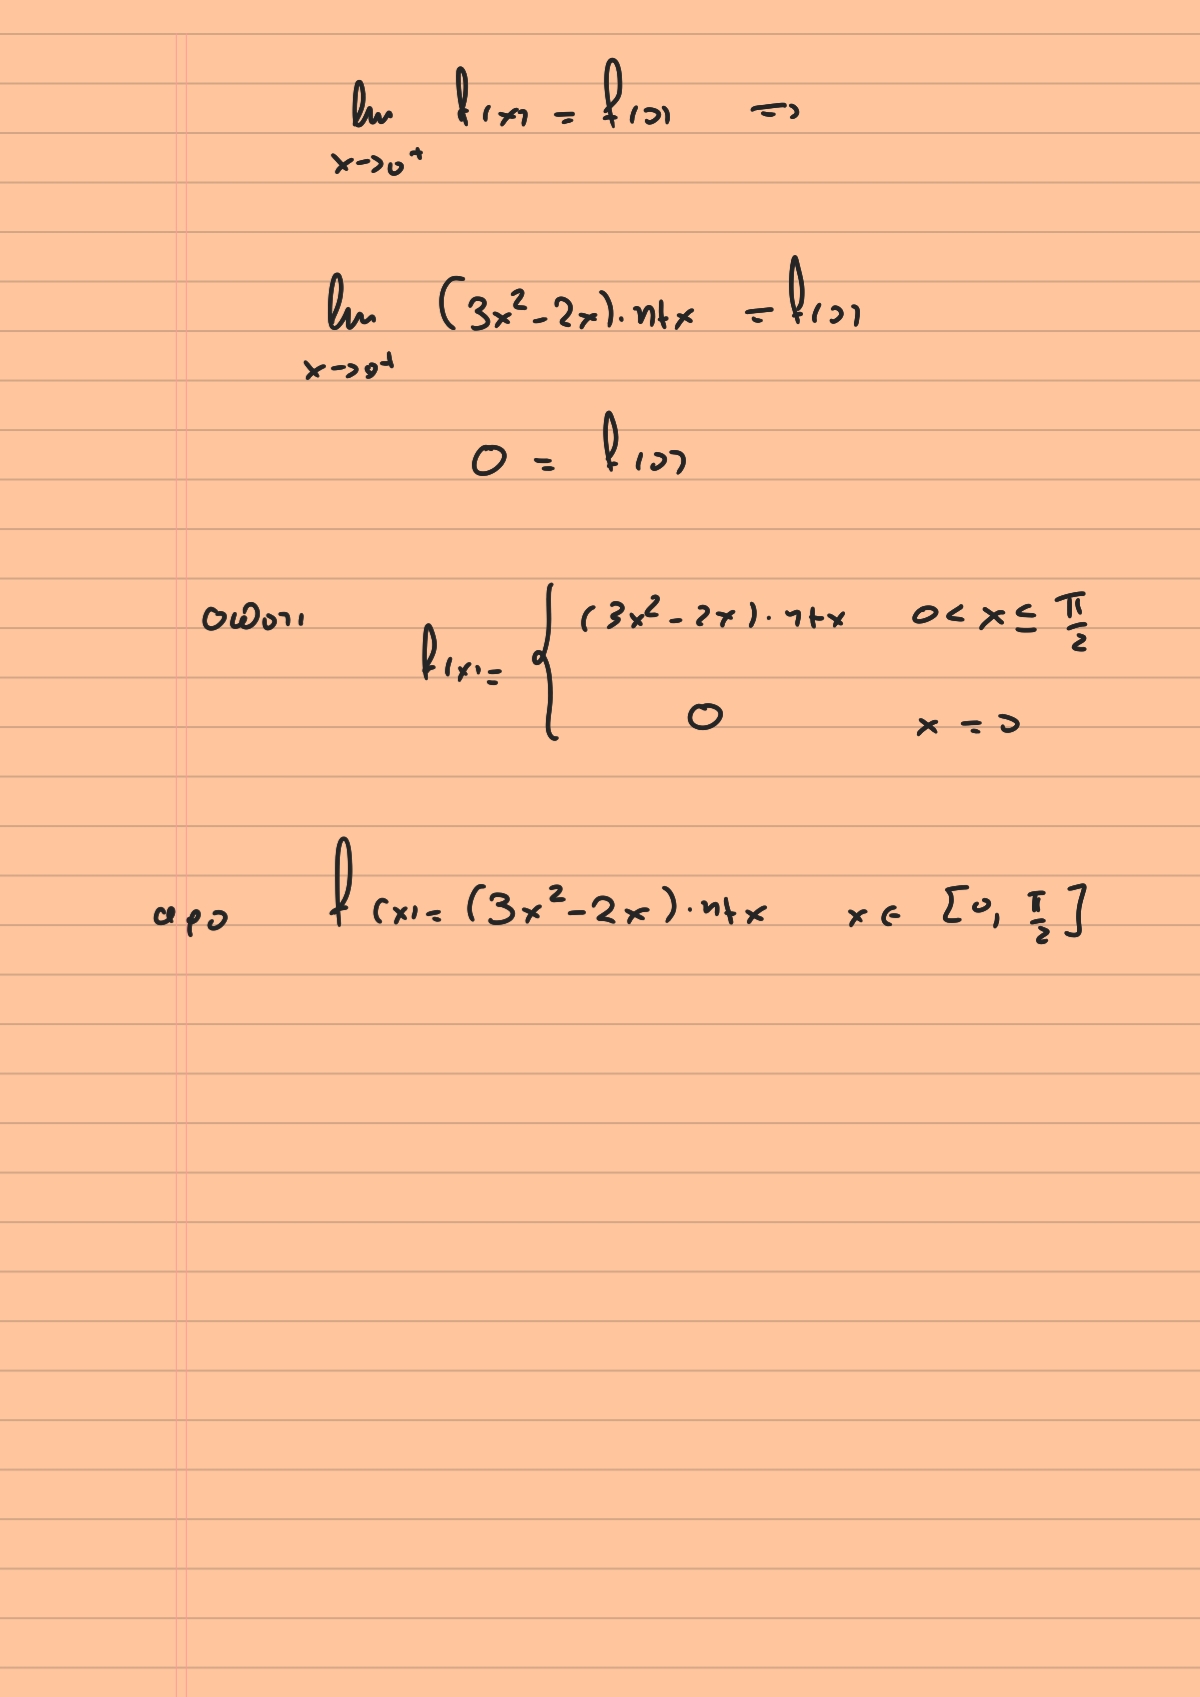 lim f(x) = f(0) ⇒
x→0⁺
lim (3x²-2x)·ημx = f(0)
x→0⁺
0 = f(0)
οποτε f(x) = { (3x²-2x)·ημx 0 < x ≤ π/2
0 x = 0
αρα f(x) = (3x²-2x)·ημx x ∈ [0, π/2]